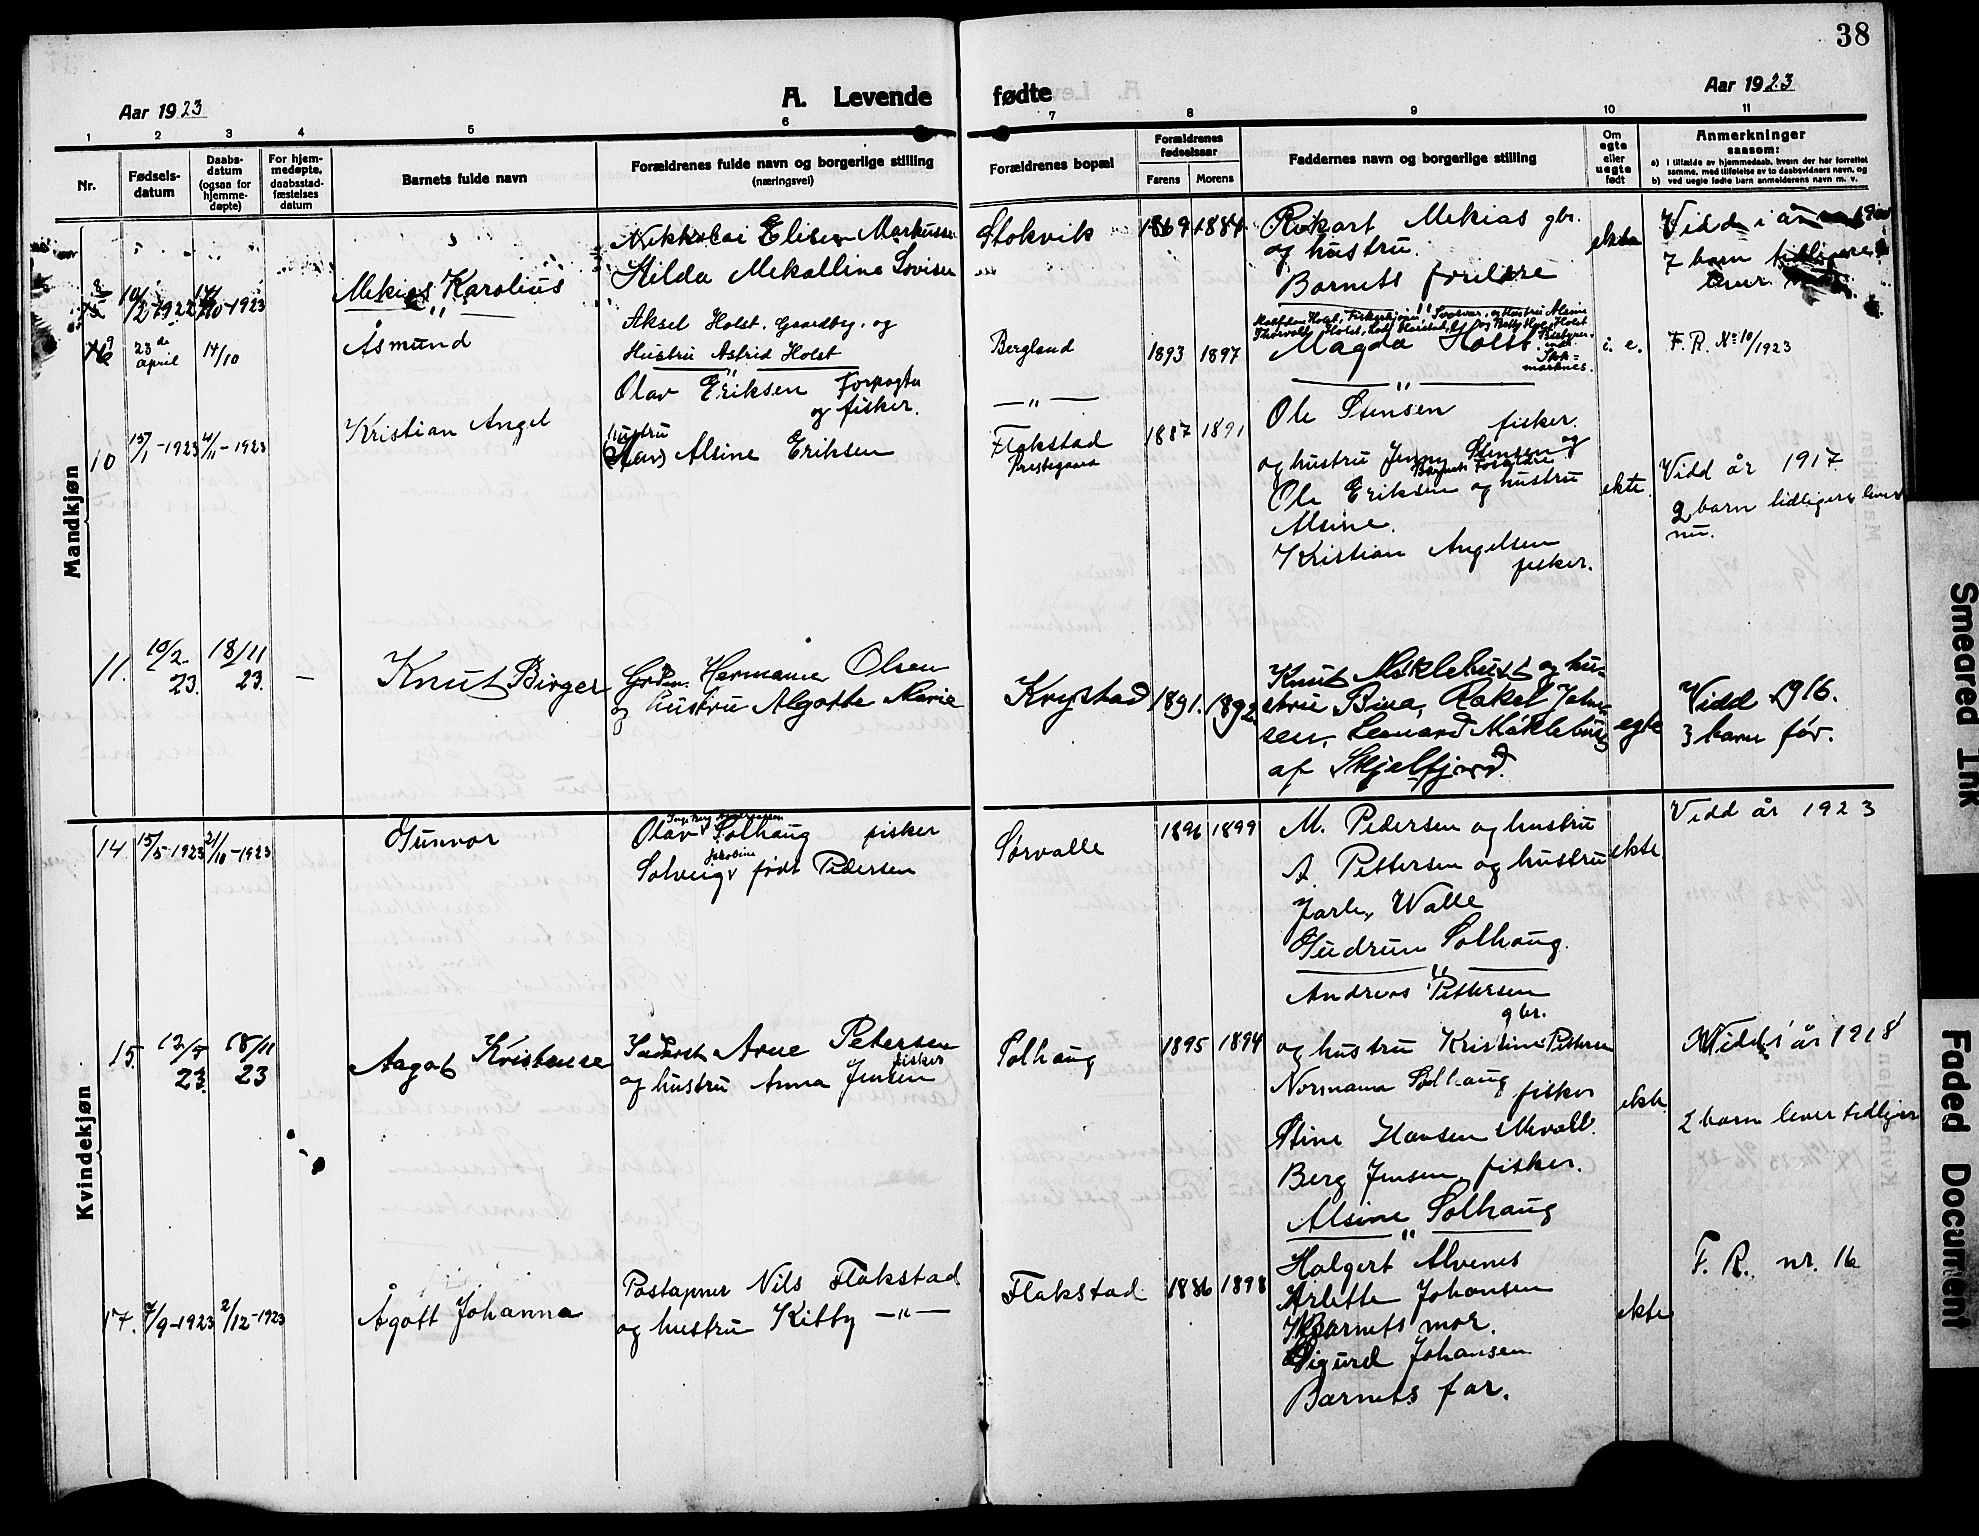 38
Aar 1923
A. Levende fødte
Aar 1923
1 2 3 4 5 6 7 8 9 10 11
Nr.
Fødsels-
datum
Daabs-
datum
(ogsaa for
hjemme-
døpte)
For hjem-
medøpte,
daabsstad-
fæstelses
datum
Barnets fulde navn
Forældrenes fulde navn og borgerlige stilling
(næringsvei)
Forældrenes bopæl
Forældrenes
fødselsaar
Farens Morens
Faddernes navn og borgerlige stilling
Om
egte
eller
uegte
født
Anmerkninger
saasom:
a) i tilfælde av hjemmedaab, hvem der har forrettet
samme, med tilføielse av to daabsvidners navn, og
b) ved uegte fødte barn anmelderens navn m. v.
Mandkjøn
Mekias Karolius
Nikkolai Elisen Markussen
Hilda Mekalline Lovise
Stokvik
1869 1884
Rikart Mekias gbr.
og hustru.
Barnets foreldre
ekte
Vidd i år
7 barn tidligere
lever
9
23de
april
14/10
Åsmund
Aksel Holst. Gaardbr. og
Hustru Astrid Holst
Bergland
1893 1897
Magda Holst
Stok=
marknes.
i. e.
F. R. No 10/1923
10
15/1-1923
4/11-1923
Kristian Angel
Olav Eriksen Forpagter
og fisker.
hustru
Alsine Eriksen
— " —
Flakstad
Prestegaard
1887 1891
Ole Stensen
fisker.
og hustru Jenny Stensen og
Barnets Foreldre
Ole Eriksen og hustru
Alsine.
Kristian Angelsen
fisker.
ekte.
Vidd år 1917
2 barn tidligere lever
nu.
11.
10/2
23.
18/11
23.
—
Knut Birger
Hermann Olsen
og hustru Algotte Marie
Krystad
1891. 1892
Knut Miklehust og hu-
stru Bina, Rakel Johan-
sen, Leonard Miklehust
af Skjelfjord.
egte
Vidd 1916.
3 barn før.
Kvindekjøn
14
15/5-1923
21/10-1923
Gunvor
Olav Solhaug fisker
Jakobine
Solveig født Pedersen
Sørvalle
1896 1899
M. Pedersen og hustru
A. Pettersen og hustru
Jarle Walle
Gudrun Solhaug.
ekte.
Vidd år 1923
15.
12/5
23.
18/11
23
Aagot Kristense
Arne Petersen
fisker
og hustru Anna Jensen
Solhaug
1895 1894
Andreas Pettersen
gbr.
og hustru Kristine Pettersen
Normann Solhaug fisker
Stine Hansen
Berg Jensen fisker.
Alsine Solhaug
ekte.
Vidd i år 1918
2 barn lever tidligere
17.
7/9-1923
2/12-1923
Ågott Johanna
Postapner Nils Flakstad
og hustru Kitty — " —
Flakstad
1886 1898
Holgert Alvenes
Arlette Johansen
Barnets mor.
Sigurd Johansen
Barnets far.
ekte
F. R. nr. 16
Smeared Ink
Faded Document